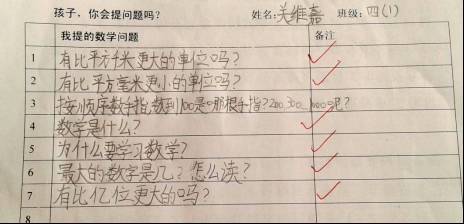 孩子，你会提问题吗？ 姓名：关维嘉 班级：四(1)
我提的数学问题 备注
1 有比平方千米更大的单位吗？
2 有比平方毫米更小的单位吗？
3 按顺序数手指，数到100是哪根手指？200、300、1000呢？
4 数学是什么？
5 为什么要学习数学？
6 最大的数字是几？怎么读？
7 有比亿位更大的吗？
8